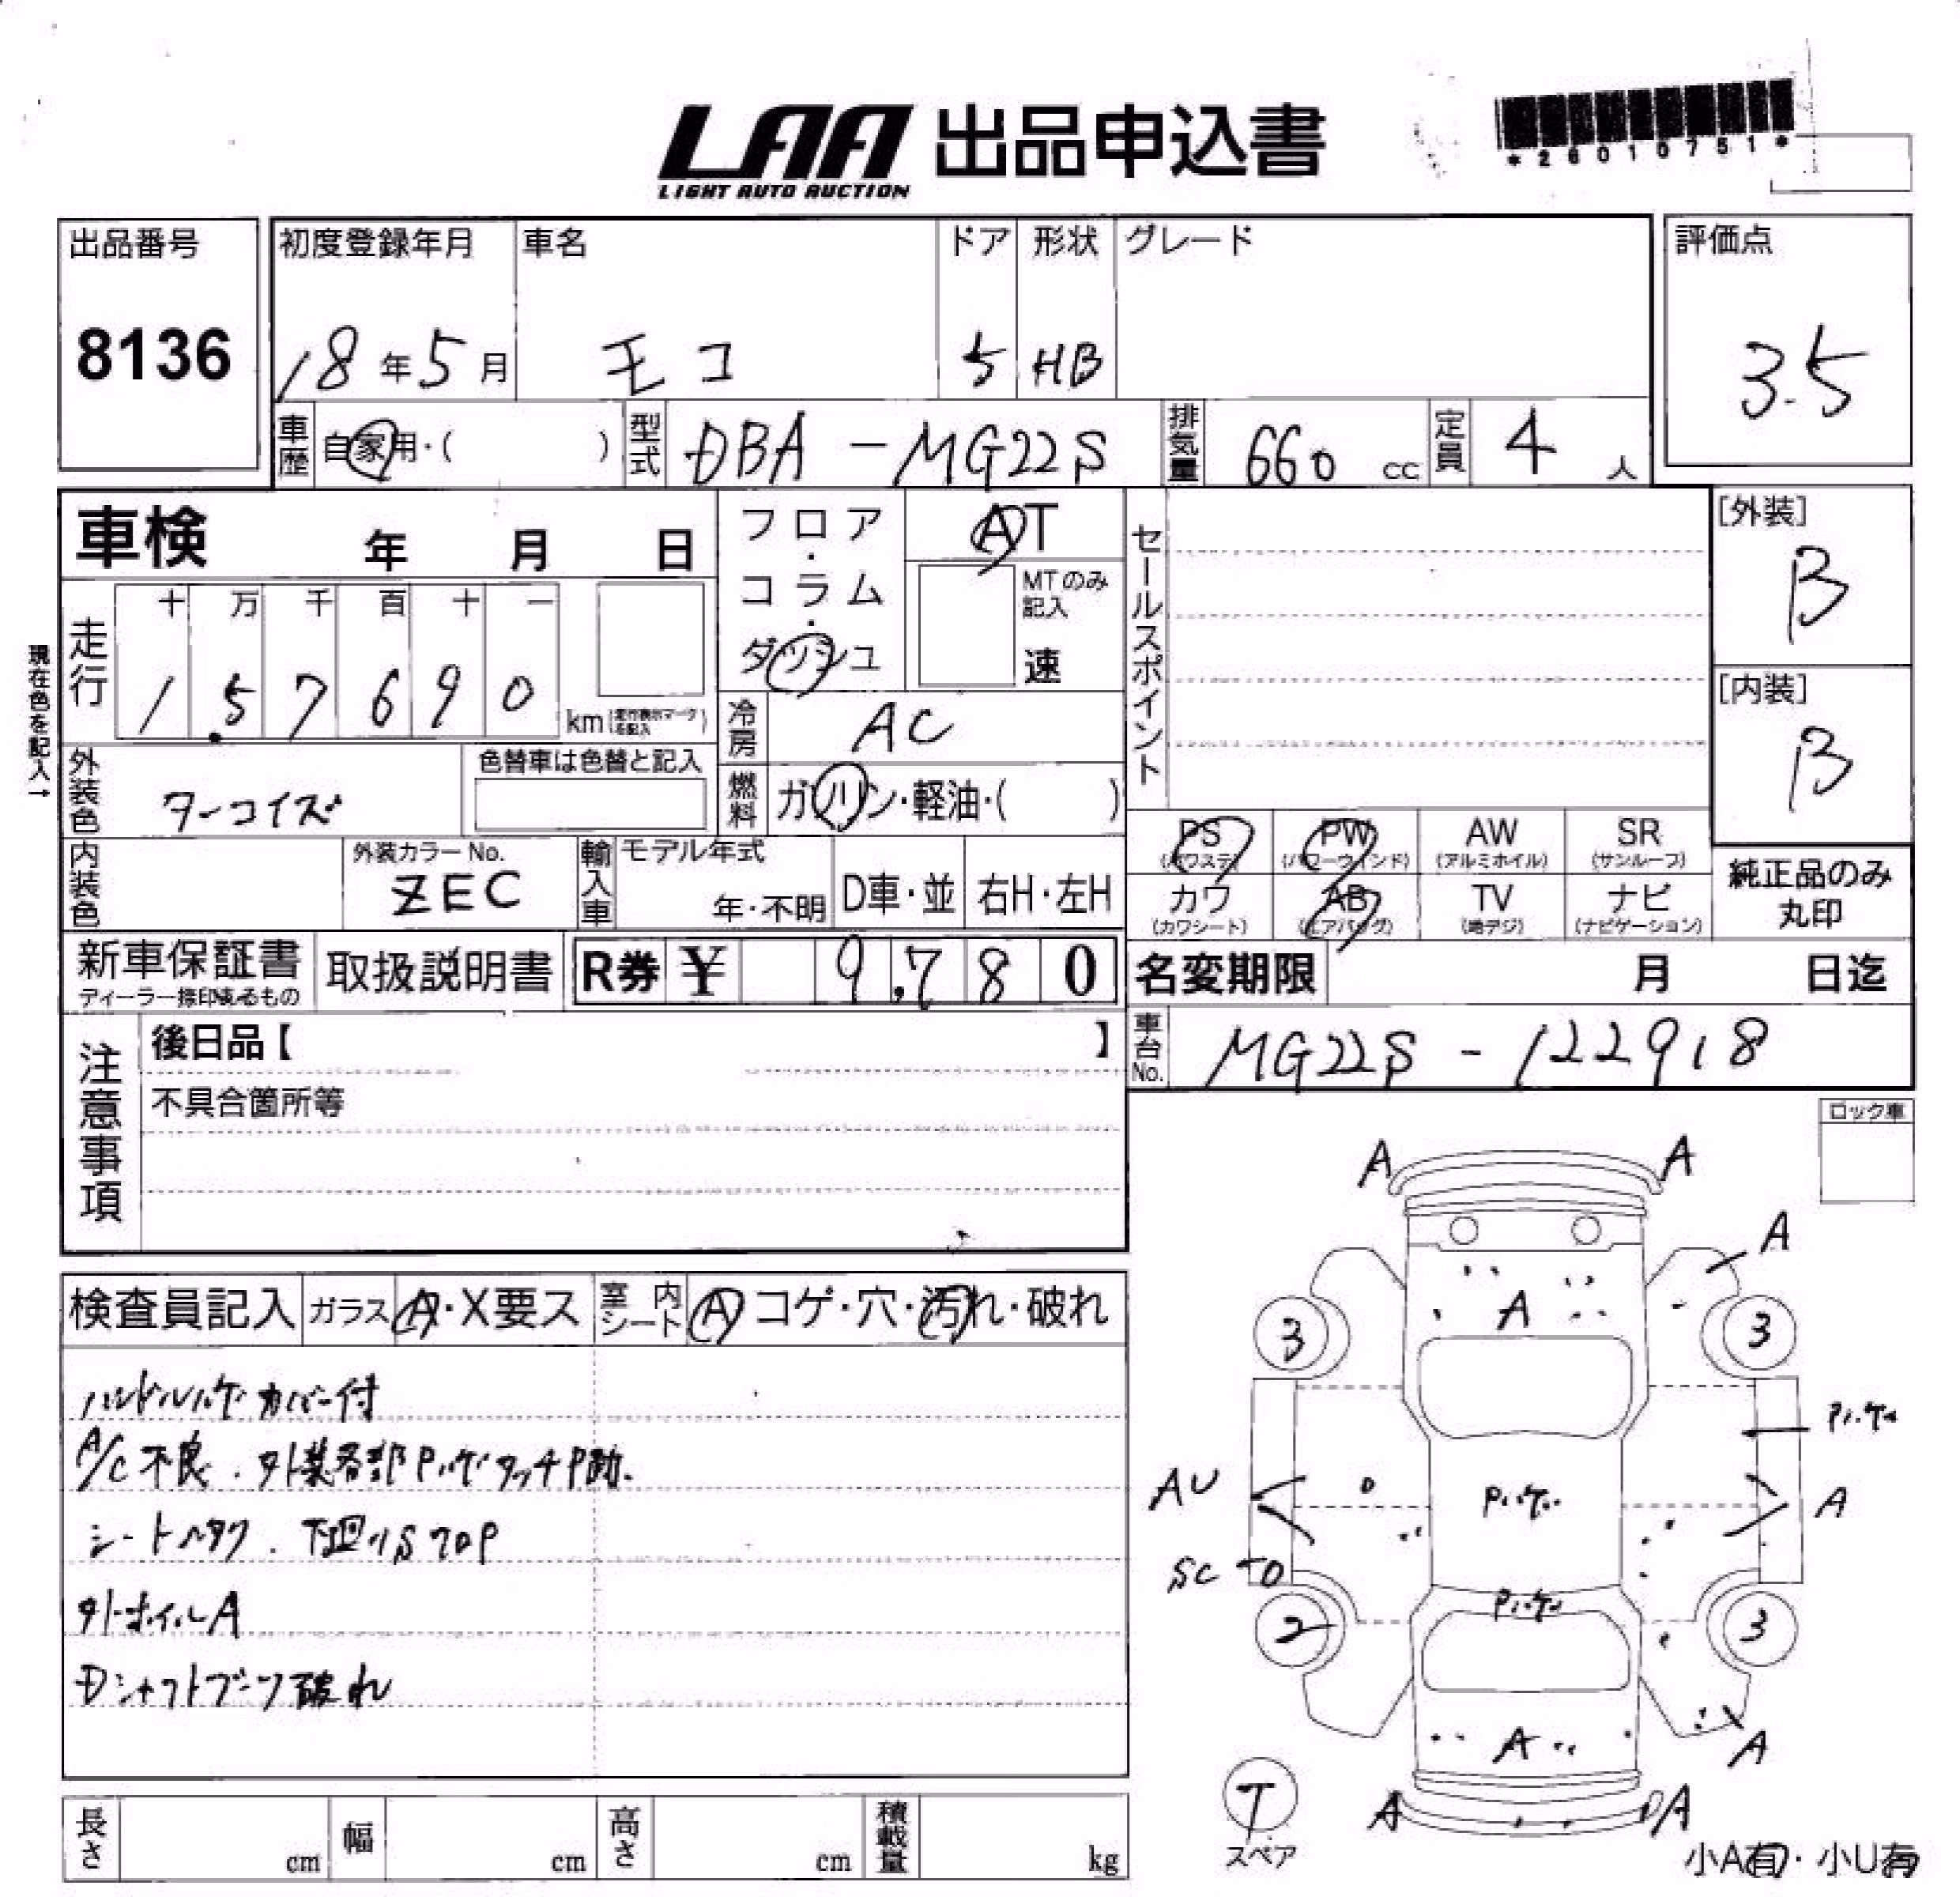 LAA 出品申込書
LIGHT AUTO AUCTION
*26010751*
出品番号
8136
初度登録年月
18年5月
車名
モコ
ドア
5
形状
HB
グレード
評価点
3.5
車歴
自家用・( )
型式
DBA-MG22S
排気量
660 cc
定員
4 人
車検 年 月 日
フロア・コラム・ダッシュ
AT
MTのみ記入
速
セールスポイント
[外装]
B
[内装]
B
現在色を記入→
走行
十 万 千 百 十 一
1 5 7 6 9 0
km (走行表示マークを記入)
冷房
AC
外装色
ターコイズ
色替車は色替と記入
燃料
ガソリン・軽油・( )
PS (パワステ)
PW (パワーウインド)
AW (アルミホイル)
SR (サンルーフ)
カワ (カワシート)
AB (エアバッグ)
TV (地デジ)
ナビ (ナビゲーション)
純正品のみ
丸印
内装色
外装カラーNo.
ZEC
輸入車
モデル年式
年・不明
D車・並
右H・左H
新車保証書
ディーラー捺印あるもの
取扱説明書
R券 ¥ 9,780
名変期限 月 日迄
車台No.
MG22S-122918
注意事項
後日品【 】
不具合箇所等
ロック車
検査員記入
ガラス A・X要ス
室内シート A コゲ・穴・汚れ・破れ
ハンドルハゲ カバー付
A/C不良. 外装各部Pハゲ タッチP跡.
シートヘタク. 下回りS
外ホイルA
Dシャフトブーツ破れ
A A
A
A
3 3
Pハゲ
AU
Pハゲ
A
SC
Pハゲ
2 3
A
A
T
スペア
A A
小A有・小U有
長さ cm
幅 cm
高さ cm
積載量 kg